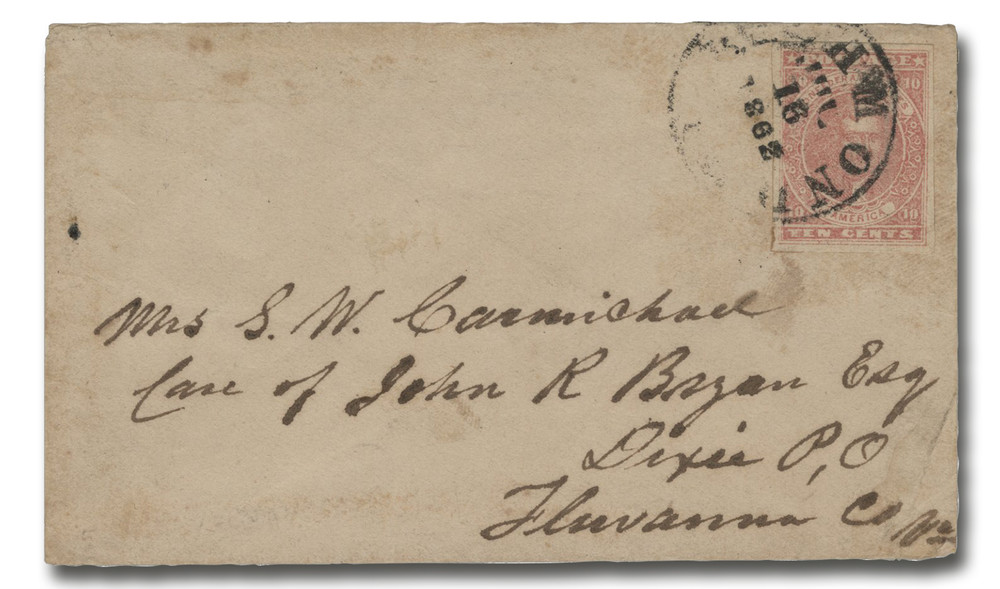 HMOND
JUL
16
1862
POSTAGE
10 10
AMERICA
10 10
TEN CENTS
Mrs S. W. Carmichael
Care of John R Bryan Esq
Dixie P,O
Fluvanna Co Va